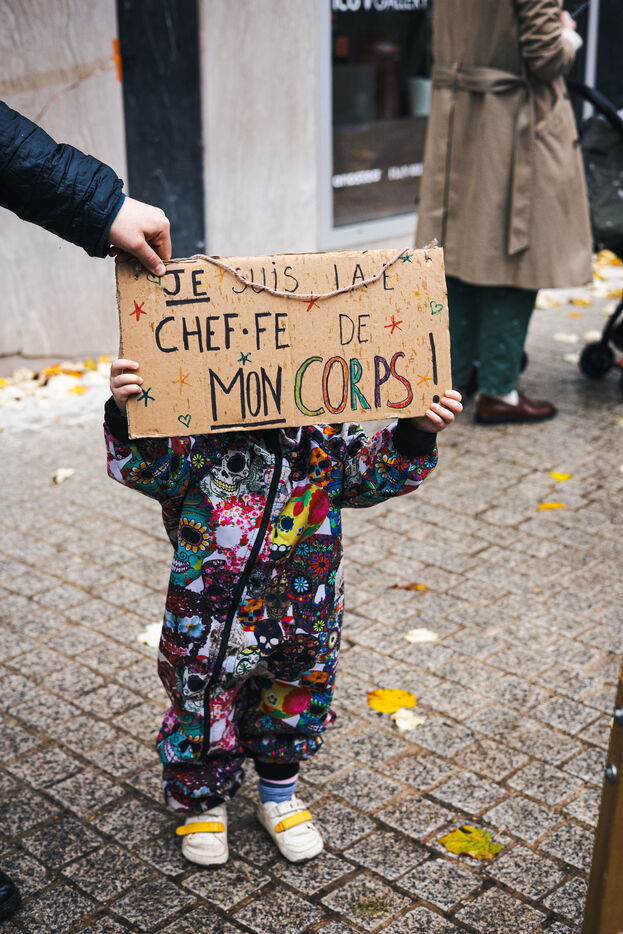 GALLERY
JE SUIS LA·E
CHEF·FE DE
MON CORPS !